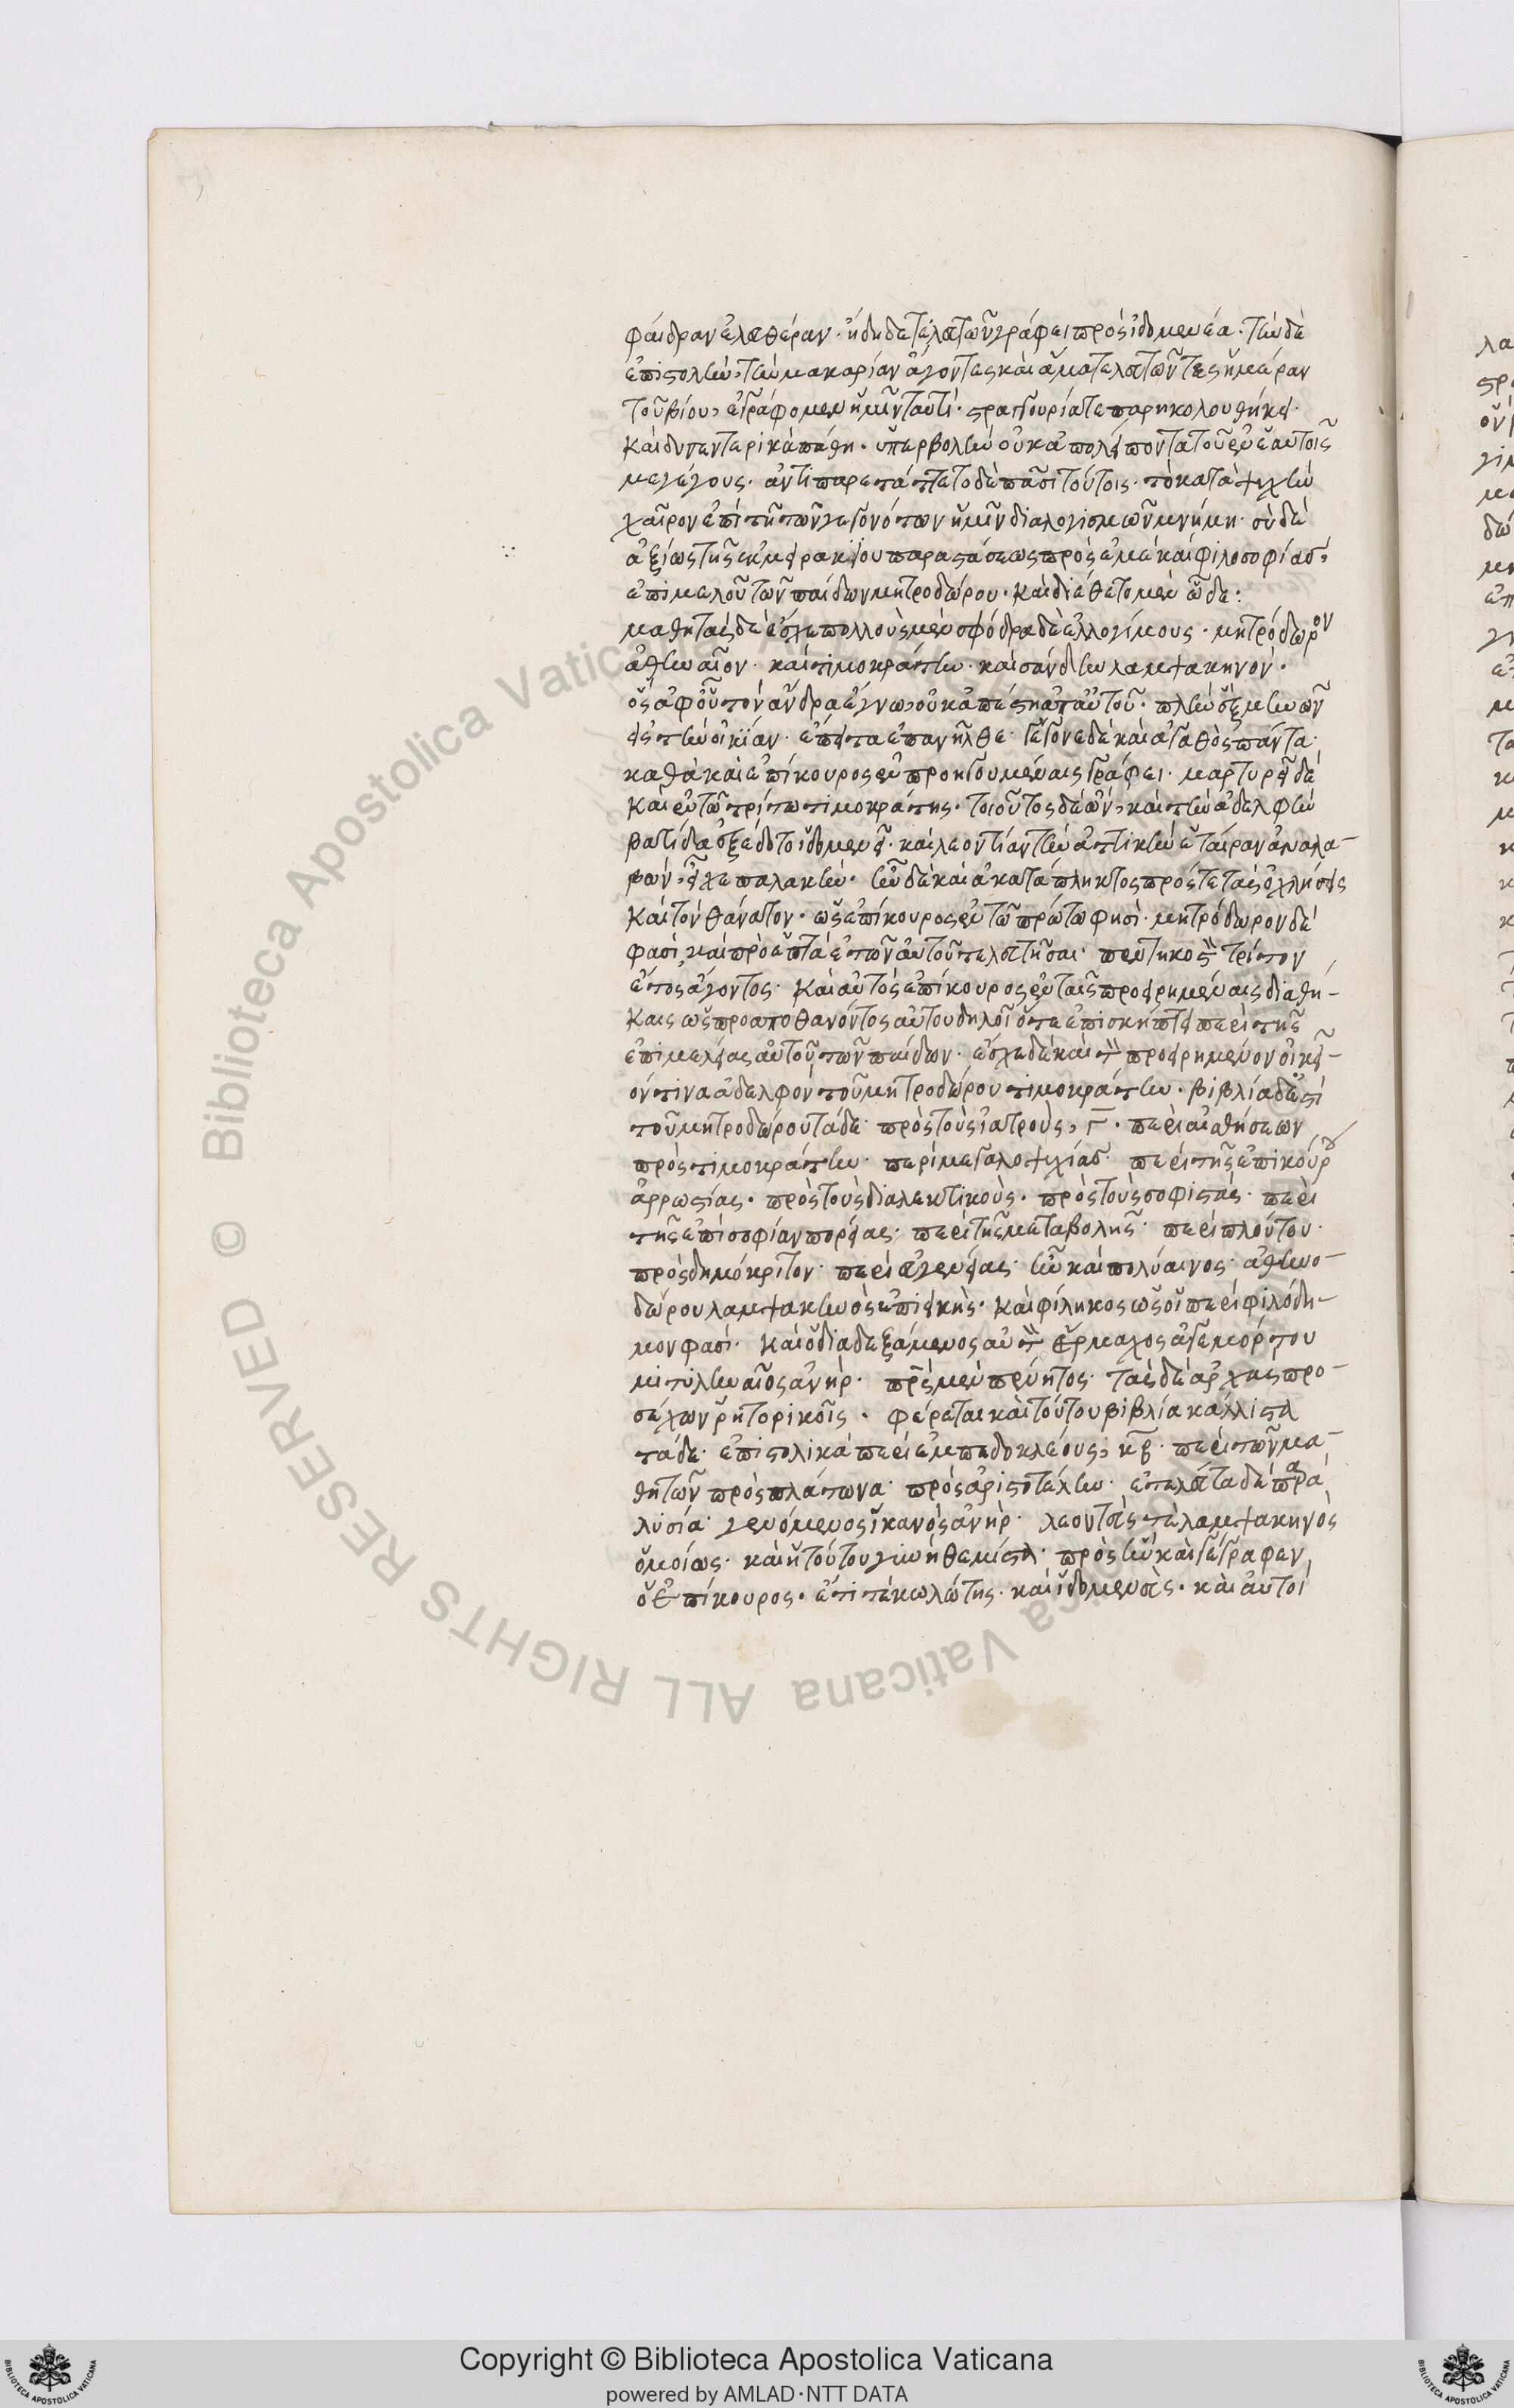 φαίδραν ἐλευθέραν· ἤδη δὲ τελευτῶν γράφει πρὸς ἰδομενέα· τὴν δὲ
ἐπιστολὴν, τὴν μακαρίαν ἄγοντες καὶ ἅμα τελευτῶντες ἡμέραν
τοῦ βίου, ἐγράφομεν ὑμῖν ταυτί· στραγγουρία τε παρηκολουθήκει·
καὶ δυσεντερικὰ πάθη· ὑπερβολὴν οὐκ ἀπολείποντα τοῦ ἐν ἑαυτοῖς
μεγέγους· ἀντιπαρετάττετο δὲ πᾶσι τούτοις· τὸ κατὰ ψυχὴν
χαῖρον ἐπὶ τῇ τῶν γεγονότων ἡμῖν διαλογισμῶν μνήμη· σὺ δὲ
ἀξίως τῆς ἐκ μειρακίου παραστάσεως πρὸς ἐμὲ καὶ φιλοσοφίαν,
ἐπιμελοῦ τῶν παίδων μητροδώρου· καὶ διέθετο μὲν ὧδε:
μαθητὰς δὲ ἔσχε πολλοὺς μὲν σφόδρα δὲ ἐλλογίμους· μητρόδωρον
ἀθηναῖον· καὶ τιμοκράτην· καὶ σάνδην λαμψακηνόν·
ὃς ἀφ' οὗ τὸν ἄνδρα ἔγνω, οὐκ ἀπέστη ἀπ' αὐτοῦ· πλὴν ἓξ μηνῶν
εἰς τὴν οἰκίαν· ἔπειτα ἐπανῆλθε· γέγονε δὲ καὶ ἀγαθὸς πάντα·
καθὰ καὶ ἐπίκουρος ἐν προηγουμέναις γράφει· μαρτυρεῖ δὲ
καὶ ἐν τῷ τρίτω τιμοκράτης· τοιοῦτος δὲ ὢν, καὶ τὴν ἀδελφὴν
βατίδα ἐξέδοτο ἰδομενεῖ· καὶ λεοντίαν τὴν ἀττικὴν ἑταίραν ἀναλα-
βὼν, εἶχε παλακὴν· ἦν δὲ καὶ ἀκατάπληκτος πρός τε τὰς ὀχλήσεις
καὶ τὸν θάνατον· ὡς ἐπίκουρος ἐν τῷ πρώτω φησί· μητρόδωρον δέ
φασὶ, καὶ πρὸ ἑπτὰ ἐτῶν αὐτοῦ τελευτῆσαι· πεντηκοστὸν τρίτον
ἔτος ἄγοντος· καὶ αὐτὸς ἐπίκουρος ἐν ταῖς προειρημέναις διαθή-
καις ὡς προαποθανόντος αὐτου δηλοῖ ὅτε ἐπισκήπτει περὶ τῆς
ἐπιμελείας αὐτοῦ τῶν παίδων· ἔσχε δὲ καὶ τὸν προειρημένον οἰκεῖ-
όν τινα ἀδελφὸν τοῦ μητροδώρου τιμοκράτην· βιβλία δέ ἐστι
τοῦ μητροδώρου τάδε· πρὸς τοὺς ἰατροὺς, γ· περὶ αἰσθήσεων
πρὸς τιμοκράτην· περὶ μεγαλοψυχίας· περὶ τῆς ἐπικούρου
ἀρρωστίας· πρὸς τοὺς διαλεκτικοὺς· πρὸς τοὺς σοφιστάς· περὶ
τῆς ἐπὶ σοφίαν πορείας· περὶ τῆς μεταβολῆς· περὶ πλούτου·
πρὸς δημόκριτον· περὶ εὐγενείας· ἦν καὶ πολύαινος· ἀθηνο-
δώρου λαμψακηνὸς ἐπιεικὴς· καὶ φίληκος ὡς οἱ περὶ φιλόδη-
μον φασί· καὶ ὁ διαδεξάμενος αὐτὸν ἕρμαχος ἀγεμόρτου
μιτυληναῖος ἀνὴρ· πρς μὲν πένητος· τὰς δὲ ἀρχὰς προ-
σέχων ῥητορικοῖς· φέρεται καὶ τούτου βιβλία κάλλιστα
τάδε· ἐπιστολικὰ περὶ ἐμπεδοκλέους, κβ· περὶ τῶν μα-
θητῶν πρὸς πλάτωνα· πρὸς ἀριστοτέλην· ἐτελεύτα δὲ παρα
λυσία· γενόμενος ἱκανὸς ἀνὴρ· λεοντεύς τε λαμψακηνὸς
ὁμοίως· καὶ ἡ τούτου γυνὴ θεμίστα· πρὸς ἣν καὶ γέγραφεν
ὁ ἐπίκουρος· ἔτι τε κωλώτης· καὶ ἰδομενεὺς· καὶ αὐτοὶ
Copyright © Biblioteca Apostolica Vaticana
powered by AMLAD·NTT DATA